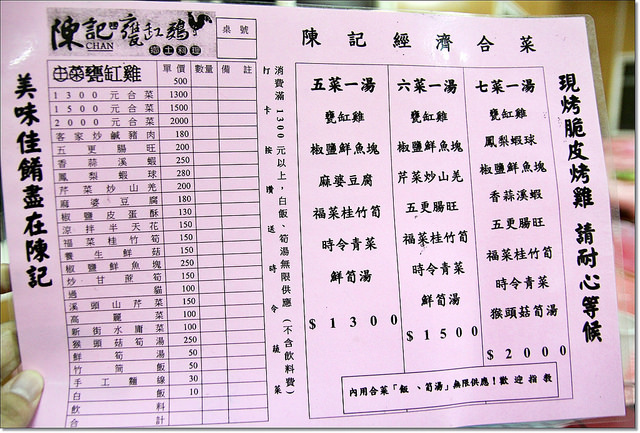 陳記甕缸雞
CHAN
鄉土料理
桌號
美味佳餚盡在陳記
主菜甕缸雞 單價 數量 備註
500
1300元合菜 1300
1500元合菜 1500
2000元合菜 2000
客家炒鹹豬肉 180
五更腸旺 200
香蒜溪蝦 250
鳳梨蝦球 280
芹菜炒山羌 200
麻婆豆腐 180
椒鹽皮蛋酥 130
涼拌半天花 150
福菜桂竹筍 150
養生鮮菇 150
椒鹽鮮魚塊 250
炒甘蔗筍 150
過貓 100
溪頭山芹菜 150
高麗菜 100
新街水庸菜 100
猴頭菇筍湯 250
鮮筍湯 50
竹筒飯 50
手工麵線 30
白飯 10
飲料
合計
消費滿1300元以上，白飯、筍湯無限供應(不含飲料費)
打卡按讚送時令蔬菜
陳記經濟合菜
五菜一湯
甕缸雞
椒鹽鮮魚塊
麻婆豆腐
福菜桂竹筍
時令青菜
鮮筍湯
$1300
六菜一湯
甕缸雞
椒鹽鮮魚塊
芹菜炒山羌
五更腸旺
福菜桂竹筍
時令青菜
鮮筍湯
$1500
七菜一湯
甕缸雞
鳳梨蝦球
椒鹽鮮魚塊
香蒜溪蝦
五更腸旺
福菜桂竹筍
時令青菜
猴頭菇筍湯
$2000
內用合菜「飯、筍湯」無限供應！歡迎指教
現烤脆皮烤雞 請耐心等候